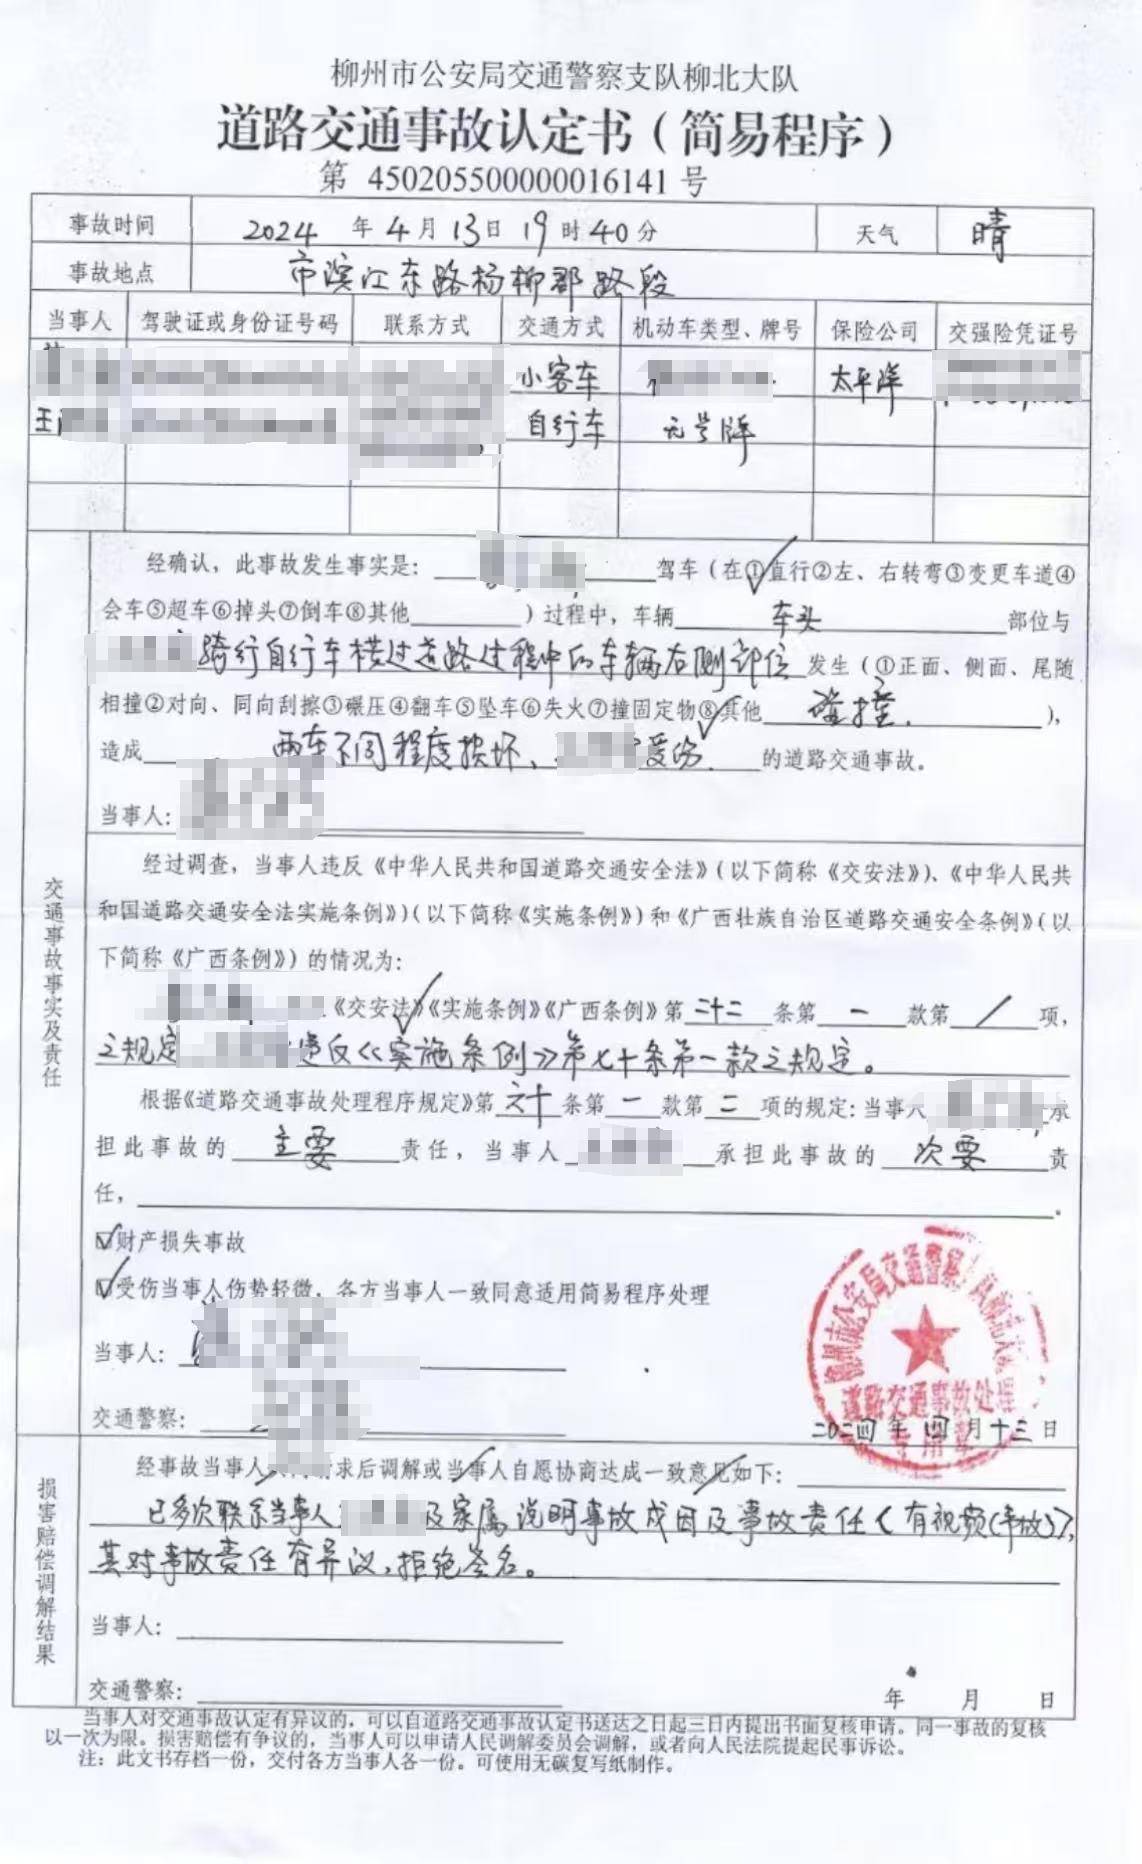 柳州市公安局交通警察支队柳北大队
道路交通事故认定书（简易程序）
第 450205500000016141 号
事故时间 2024 年 4 月 13 日 19 时 40 分 天气 晴
事故地点 市滨江东路杨柳郡路段
当事人 驾驶证或身份证号码 联系方式 交通方式 机动车类型、牌号 保险公司 交强险凭证号
小客车 太平洋
王 自行车 无号牌
经确认，此事故发生事实是： 驾车（在①直行②左、右转弯③变更车道④
会车⑤超车⑥掉头⑦倒车⑧其他 ）过程中，车辆 车头 部位与
骑行自行车横过道路过程中的车辆右侧部位 发生（①正面、侧面、尾随
相撞②对向、同向刮擦③碾压④翻车⑤坠车⑥失火⑦撞固定物⑧其他 碰撞. ），
造成 两车不同程度损坏、 受伤 的道路交通事故。
当事人：
交通事故事实及责任
经过调查，当事人违反《中华人民共和国道路交通安全法》（以下简称《交安法》）、《中华人民共
和国道路交通安全法实施条例》）（以下简称《实施条例》）和《广西壮族自治区道路交通安全条例》（以
下简称《广西条例》）的情况为：
《交安法》《实施条例》《广西条例》第 二十二 条第 一 款第 / 项，
之规定 违反《实施条例》第七十条第一款之规定。
根据《道路交通事故处理程序规定》第 六十 条第 一 款第 二 项的规定：当事人 承
担此事故的 主要 责任，当事人 承担此事故的 次要 责
任， 。
☑财产损失事故
☑受伤当事人伤势轻微，各方当事人一致同意适用简易程序处理
当事人：
交通警察：
二〇二四 年 四 月 十三 日
道路交通事故处理
专用章
损害赔偿调解结果
经事故当事人 请求后调解或当事人自愿协商达成一致意见如下：
已多次联系当事人 及家属，说明事故成因及事故责任（有视频(事故)），
其对事故责任有异议，拒绝签名。
当事人：
交通警察： 年 月 日
当事人对交通事故认定有异议的，可以自道路交通事故认定书送达之日起三日内提出书面复核申请。同一事故的复核
以一次为限。损害赔偿有争议的，当事人可以申请人民调解委员会调解，或者向人民法院提起民事诉讼。
注：此文书存档一份，交付各方当事人各一份。可使用无碳复写纸制作。